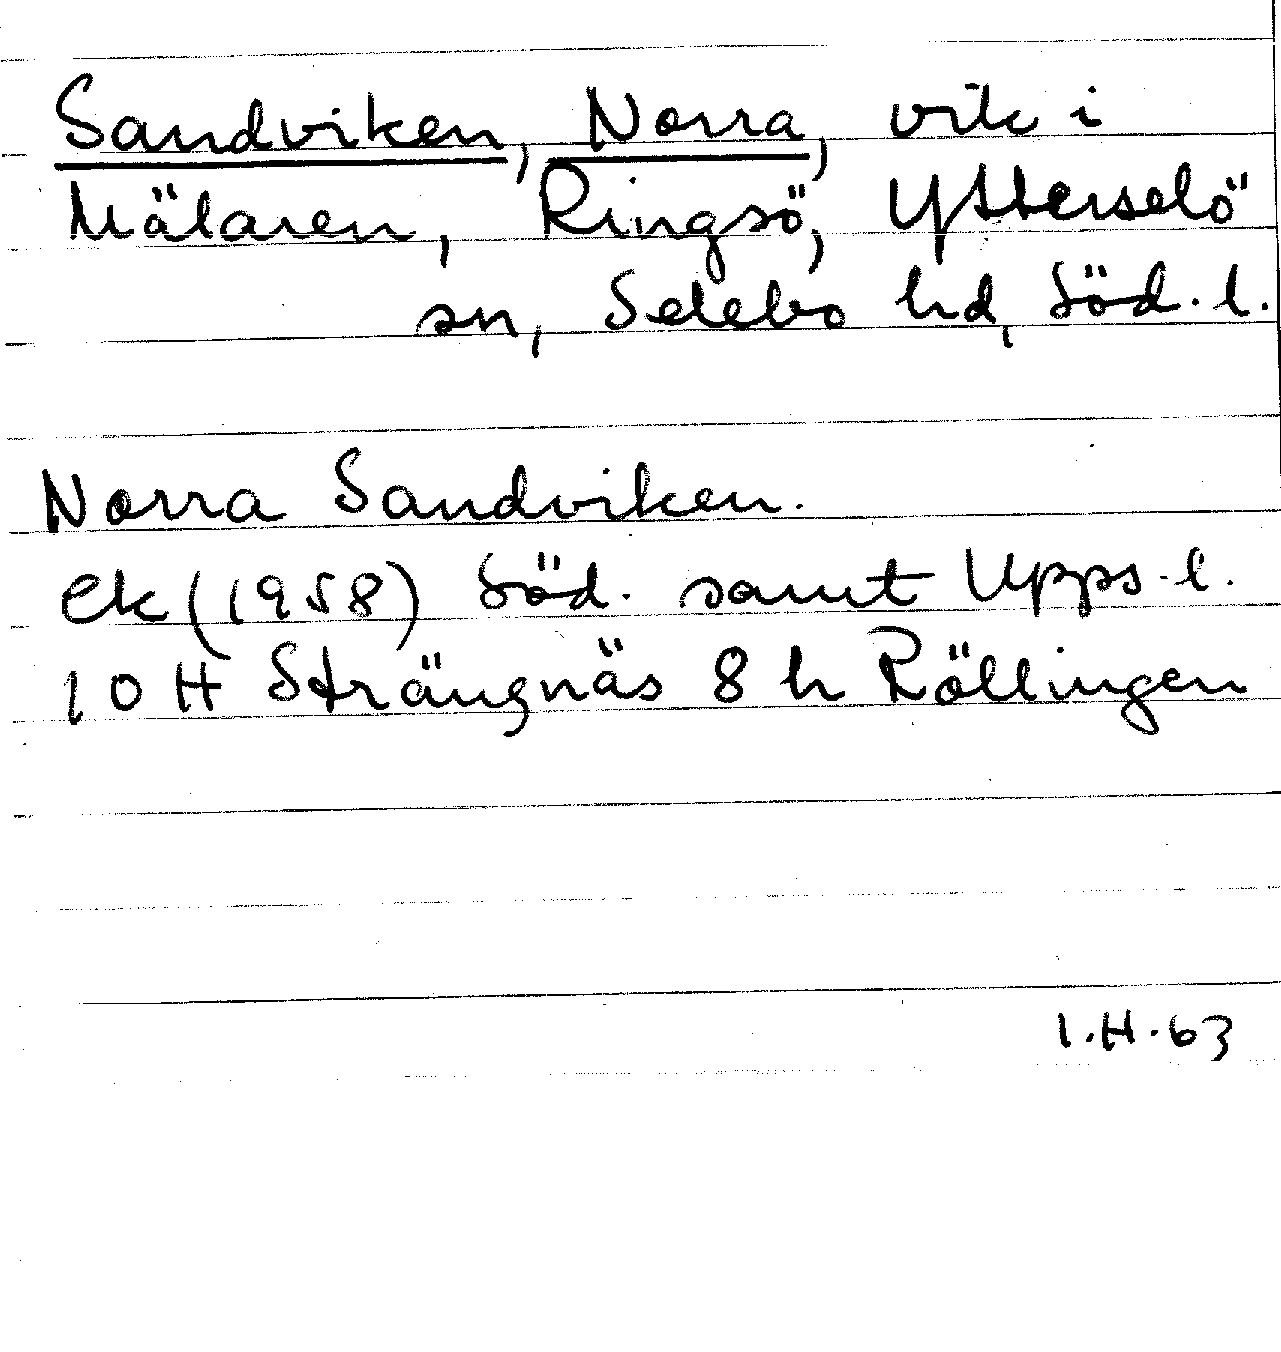 Sandviken, Norra, vik i
Mälaren, Ringsö, Ytterselö
sn, Selebo hd, Söd. l.
Norra Sandviken.
Ek (1958) Söd. samt Upps. l.
10 H Strängnäs 8 h Röllingen
I.H. 63